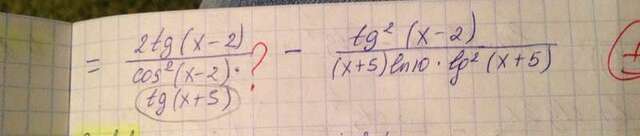 = \frac{2tg(x-2)}{cos²(x-2) · tg(x+5)} ? - \frac{tg²(x-2)}{(x+5)ln10 · lg²(x+5)}